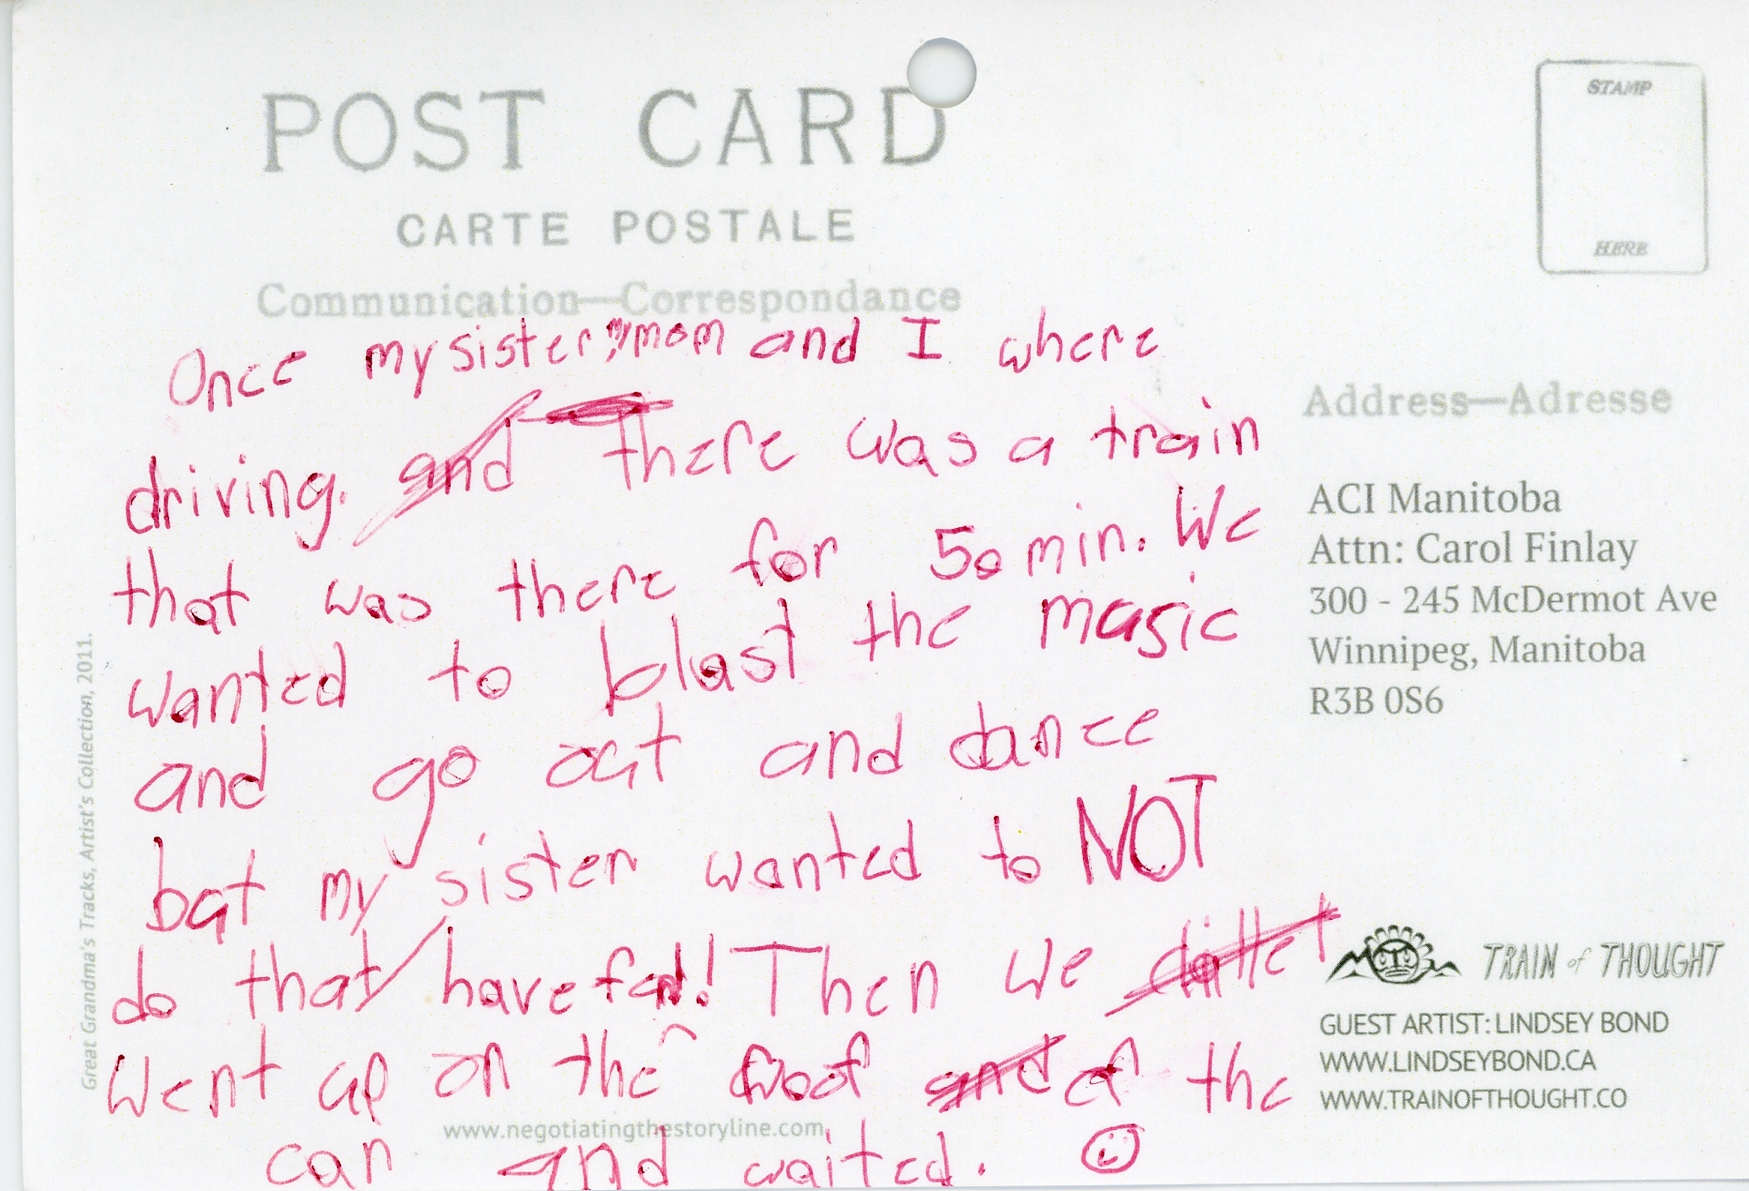 POST CARD
CARTE POSTALE
Communication—Correspondance
STAMP
HERE
Once my sister, mom and I where
driving. and There was a train
that was there for 50 min. We
wanted to blast the masic
and go out and dance
but my sister wanted to NOT
do that/have fun! Then we
went up on the roof and of the
car and waited. ☺
www.negotiatingthestoryline.com
Great Grandma's Tracks, Artist's Collection, 2011.
Address—Adresse
ACI Manitoba
Attn: Carol Finlay
300 - 245 McDermot Ave
Winnipeg, Manitoba
R3B 0S6
TRAIN of THOUGHT
GUEST ARTIST: LINDSEY BOND
WWW.LINDSEYBOND.CA
WWW.TRAINOFTHOUGHT.CO